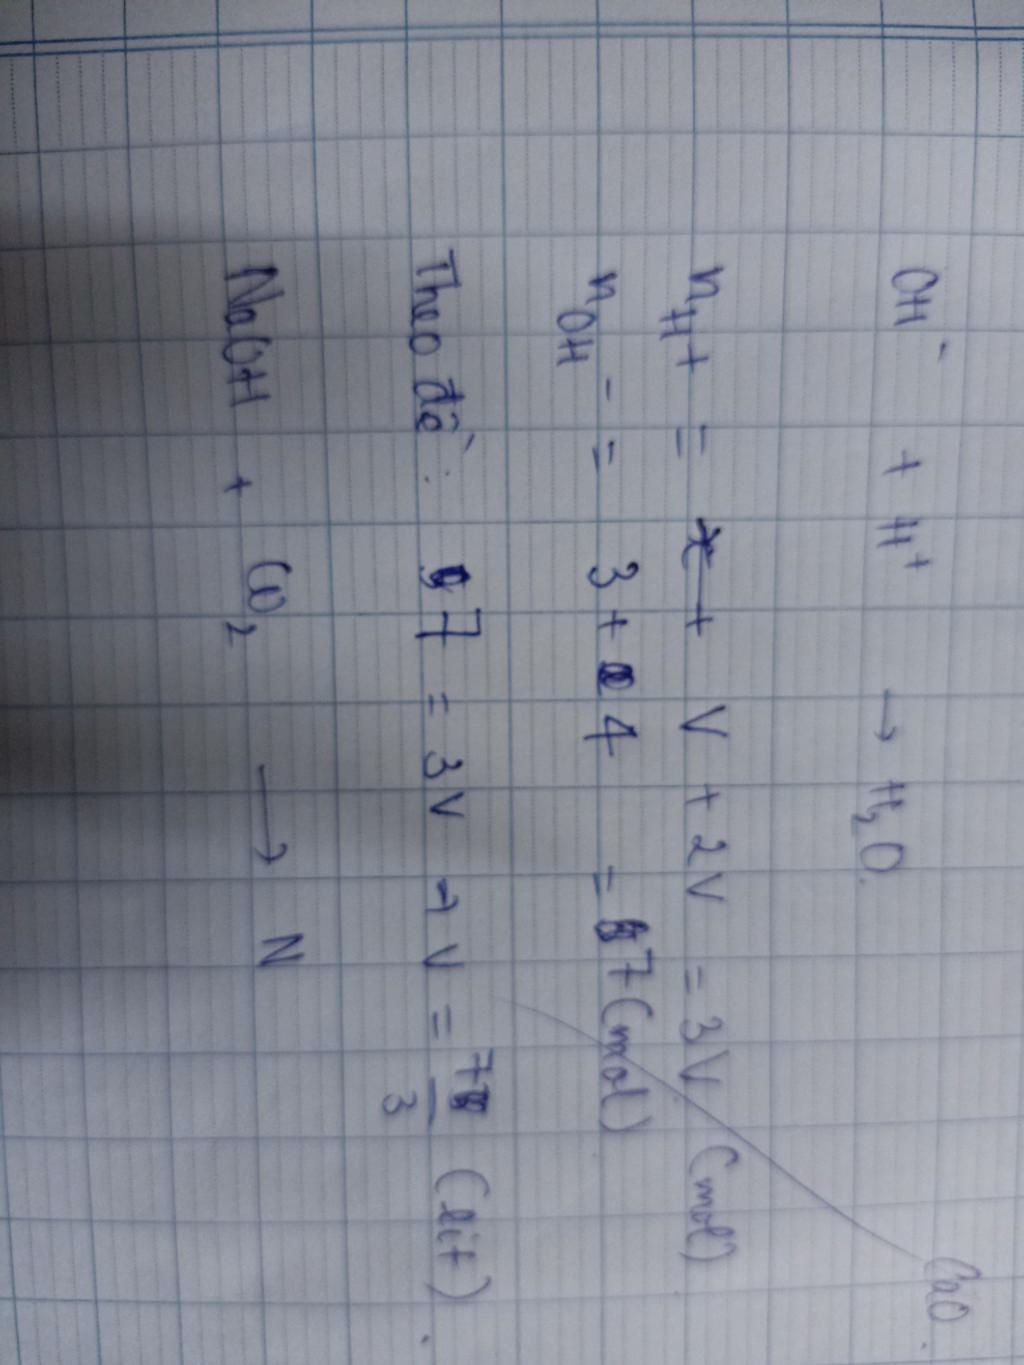 CaO
OH⁻ + H⁺ → H₂O
n_H⁺ = V + 2V = 3V (mol)
n_OH⁻ = 3 + 4 = 7 (mol)
Theo đề: 7 = 3V → V = 7/3 (lit)
NaOH + CO₂ → N